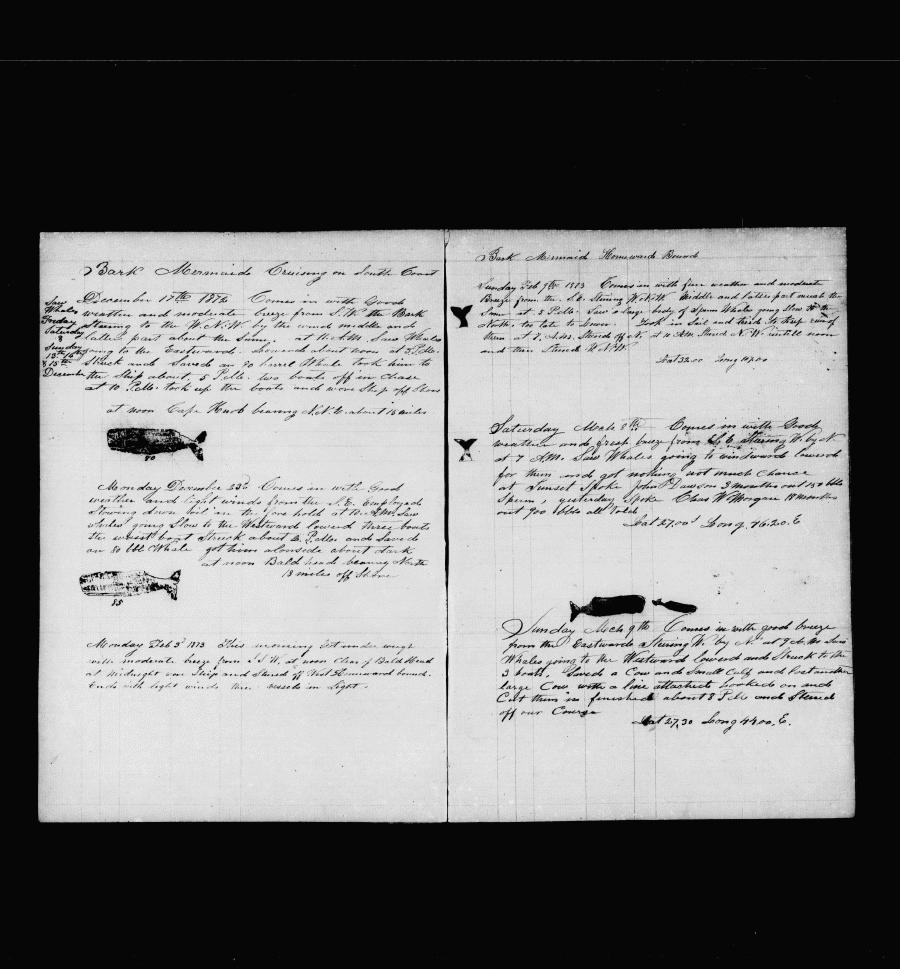 Bark Mermaid Cruising on South Coast
Saw
Whales
Friday
Saturday
&
Sunday
13th 14th
& 15th
December
December 17th 1872 Comes in with Good
weather and moderate breze from S.W. the Bark
Stering to the W.N.W. by the wind middle and
latter part about the Same. at 11 A.M. Saw Whales
going to the Eastward. lowered about noon at 2 P.M.
Struck and Saved an 70 barrel Whale took him to
the Ship about 5 P.M. two boats off in chase
at 10 P.M. took up the boats and wore Ship off Shore
at noon Cape Knob bearing N.N.E. about 15 miles
70
Monday December 23d Comes in with Good
weather and light winds from the S.E. Employed
Stowing down oil in the fore hold at 10 A.M. Saw
whales going Slow to the Westward lowerd three boats
the waist boat Struck about 2 P.M. and Saved
an 80 bbl Whale got him alonside about dark
at noon Bald head bearing North
18 miles off Shore
85
Monday Feb 3d 1873 This morning Got under weigh
with moderate breze from S.S.W. at noon Clear of Bald Head
at Midnight wore Ship and Stered off West Homeward bound.
Ends with light winds three vessels in Sight.
Bark Mermaid Homewards Bound
Sunday Feb 9th 1873 Comes in with fine weather and moderate
Breze from the S.E. Stering W.N.W. Middle and latter part much the
Same at 5 P.M. Saw a large body of Sperm Whales going Slow to the
North. to late to lower. Took in Sail and tried to keep run of
them at 1 A.M. Stered off N. at 4 A.M. Stered N.W. until noon
and then Stered W.N.W.
Lat 32.00 Long
Saturday Mch 8th Comes in with Good
weather and fresh breze from S.E. Stering W. by N
at 7 A.M. Saw Whales going to windward lowered
for them and got nothing not much chance
at Sunset Spoke John Dawson 3 months out 150 bbls
Sperm, yesterday Spoke Chas W Morgan 18 months
out 900 bbls all told
Lat 27.00 Long 76.20.E
Sunday Mch 9th Comes in with good breze
from the Eastward Stering W. by N. at 9 A.M. Saw
Whales going to the Westward lowered and Struck to the
3 boats, Saved a Cow and Small Calf and lost another
large Cow with a line attached hooked on and
Cut them in finished about 8 P.M. and Stered
off our Course
Lat 27.30 Long 44.00.E.